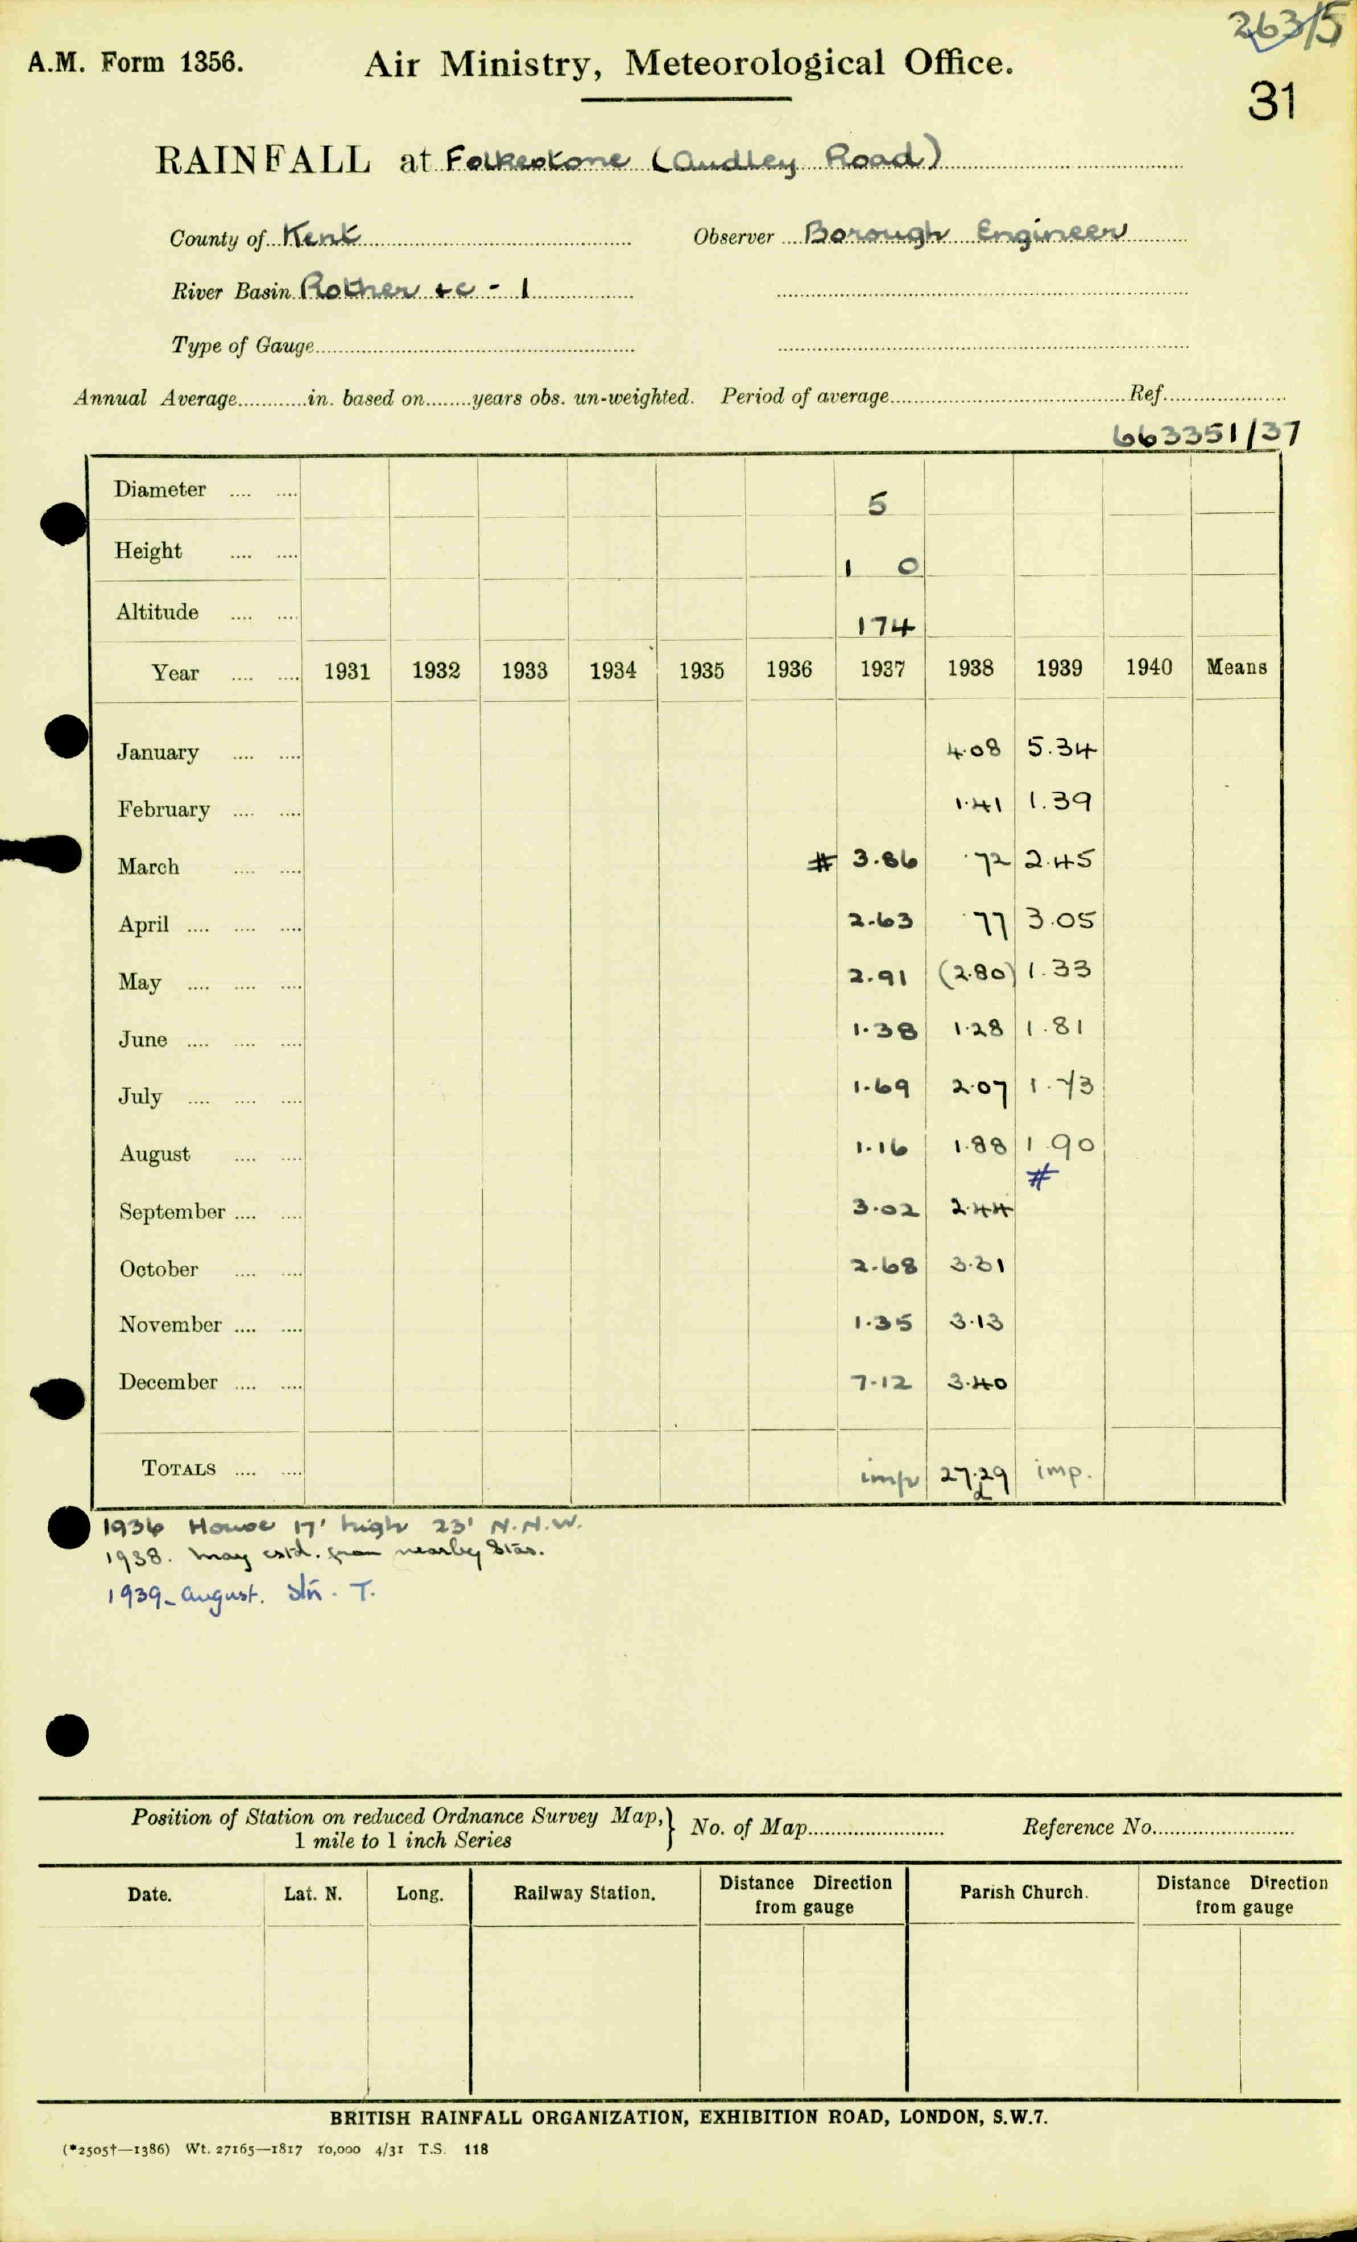 263/5
A.M. Form 1356. Air Ministry, Meteorological Office.
31
RAINFALL at Folkestone (Audley Road)
County of Kent Observer Borough Engineer
River Basin Rother &c - 1
Type of Gauge
Annual Average in. based on years obs. un-weighted. Period of average Ref.
663351/37
Diameter 5
Height 1 0
Altitude 174
Year 1931 1932 1933 1934 1935 1936 1937 1938 1939 1940 Means
January 4.08 5.34
February 1.41 1.39
March # 3.86 .72 2.45
April 2.63 .77 3.05
May 2.91 (2.80) 1.33
June 1.38 1.28 1.81
July 1.69 2.07 1.73
August 1.16 1.88 1.90
#
September 3.02 2.44
October 2.68 3.31
November 1.35 3.13
December 7.12 3.40
TOTALS imp 27.29 imp.
1936 House 17' high 23' N.N.W.
1938. May estd. from nearby Stas.
1939 - August. Stn. T.
Position of Station on reduced Ordnance Survey Map, } No. of Map Reference No.
1 mile to 1 inch Series
Date. Lat. N. Long. Railway Station. Distance Direction from gauge Parish Church. Distance Direction from gauge
BRITISH RAINFALL ORGANIZATION, EXHIBITION ROAD, LONDON, S.W.7.
(*2505†—1386) Wt. 27165—1817 10,000 4/31 T.S. 118